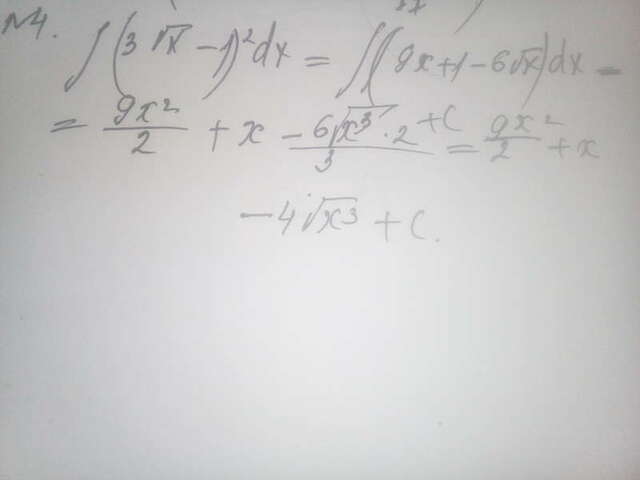 №4.
∫(3√x − 1)²dx = ∫(9x+1−6√x)dx =
= 9x²/2 + x − 6√x³·2/3 + C = 9x²/2 + x
− 4√x³ + C.